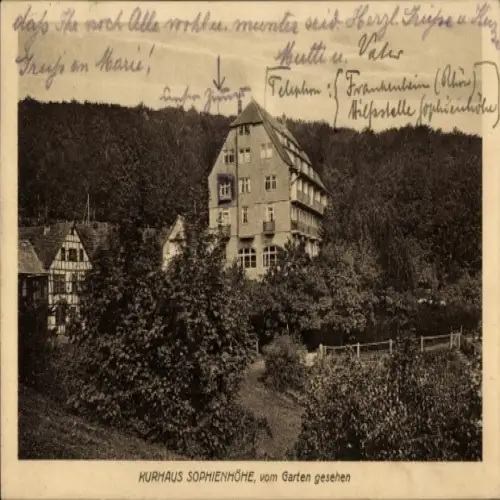 daß Ihr noch Alle wohl u. munter seid. Herzl. Grüße u. Kuß
Mutti u. Vater
Gruß an Marie!
unser Zimmer
Telephon: Frankenheim (Rhön)
Hilfsstelle Sophienhöhe
KURHAUS SOPHIENHÖHE, vom Garten gesehen